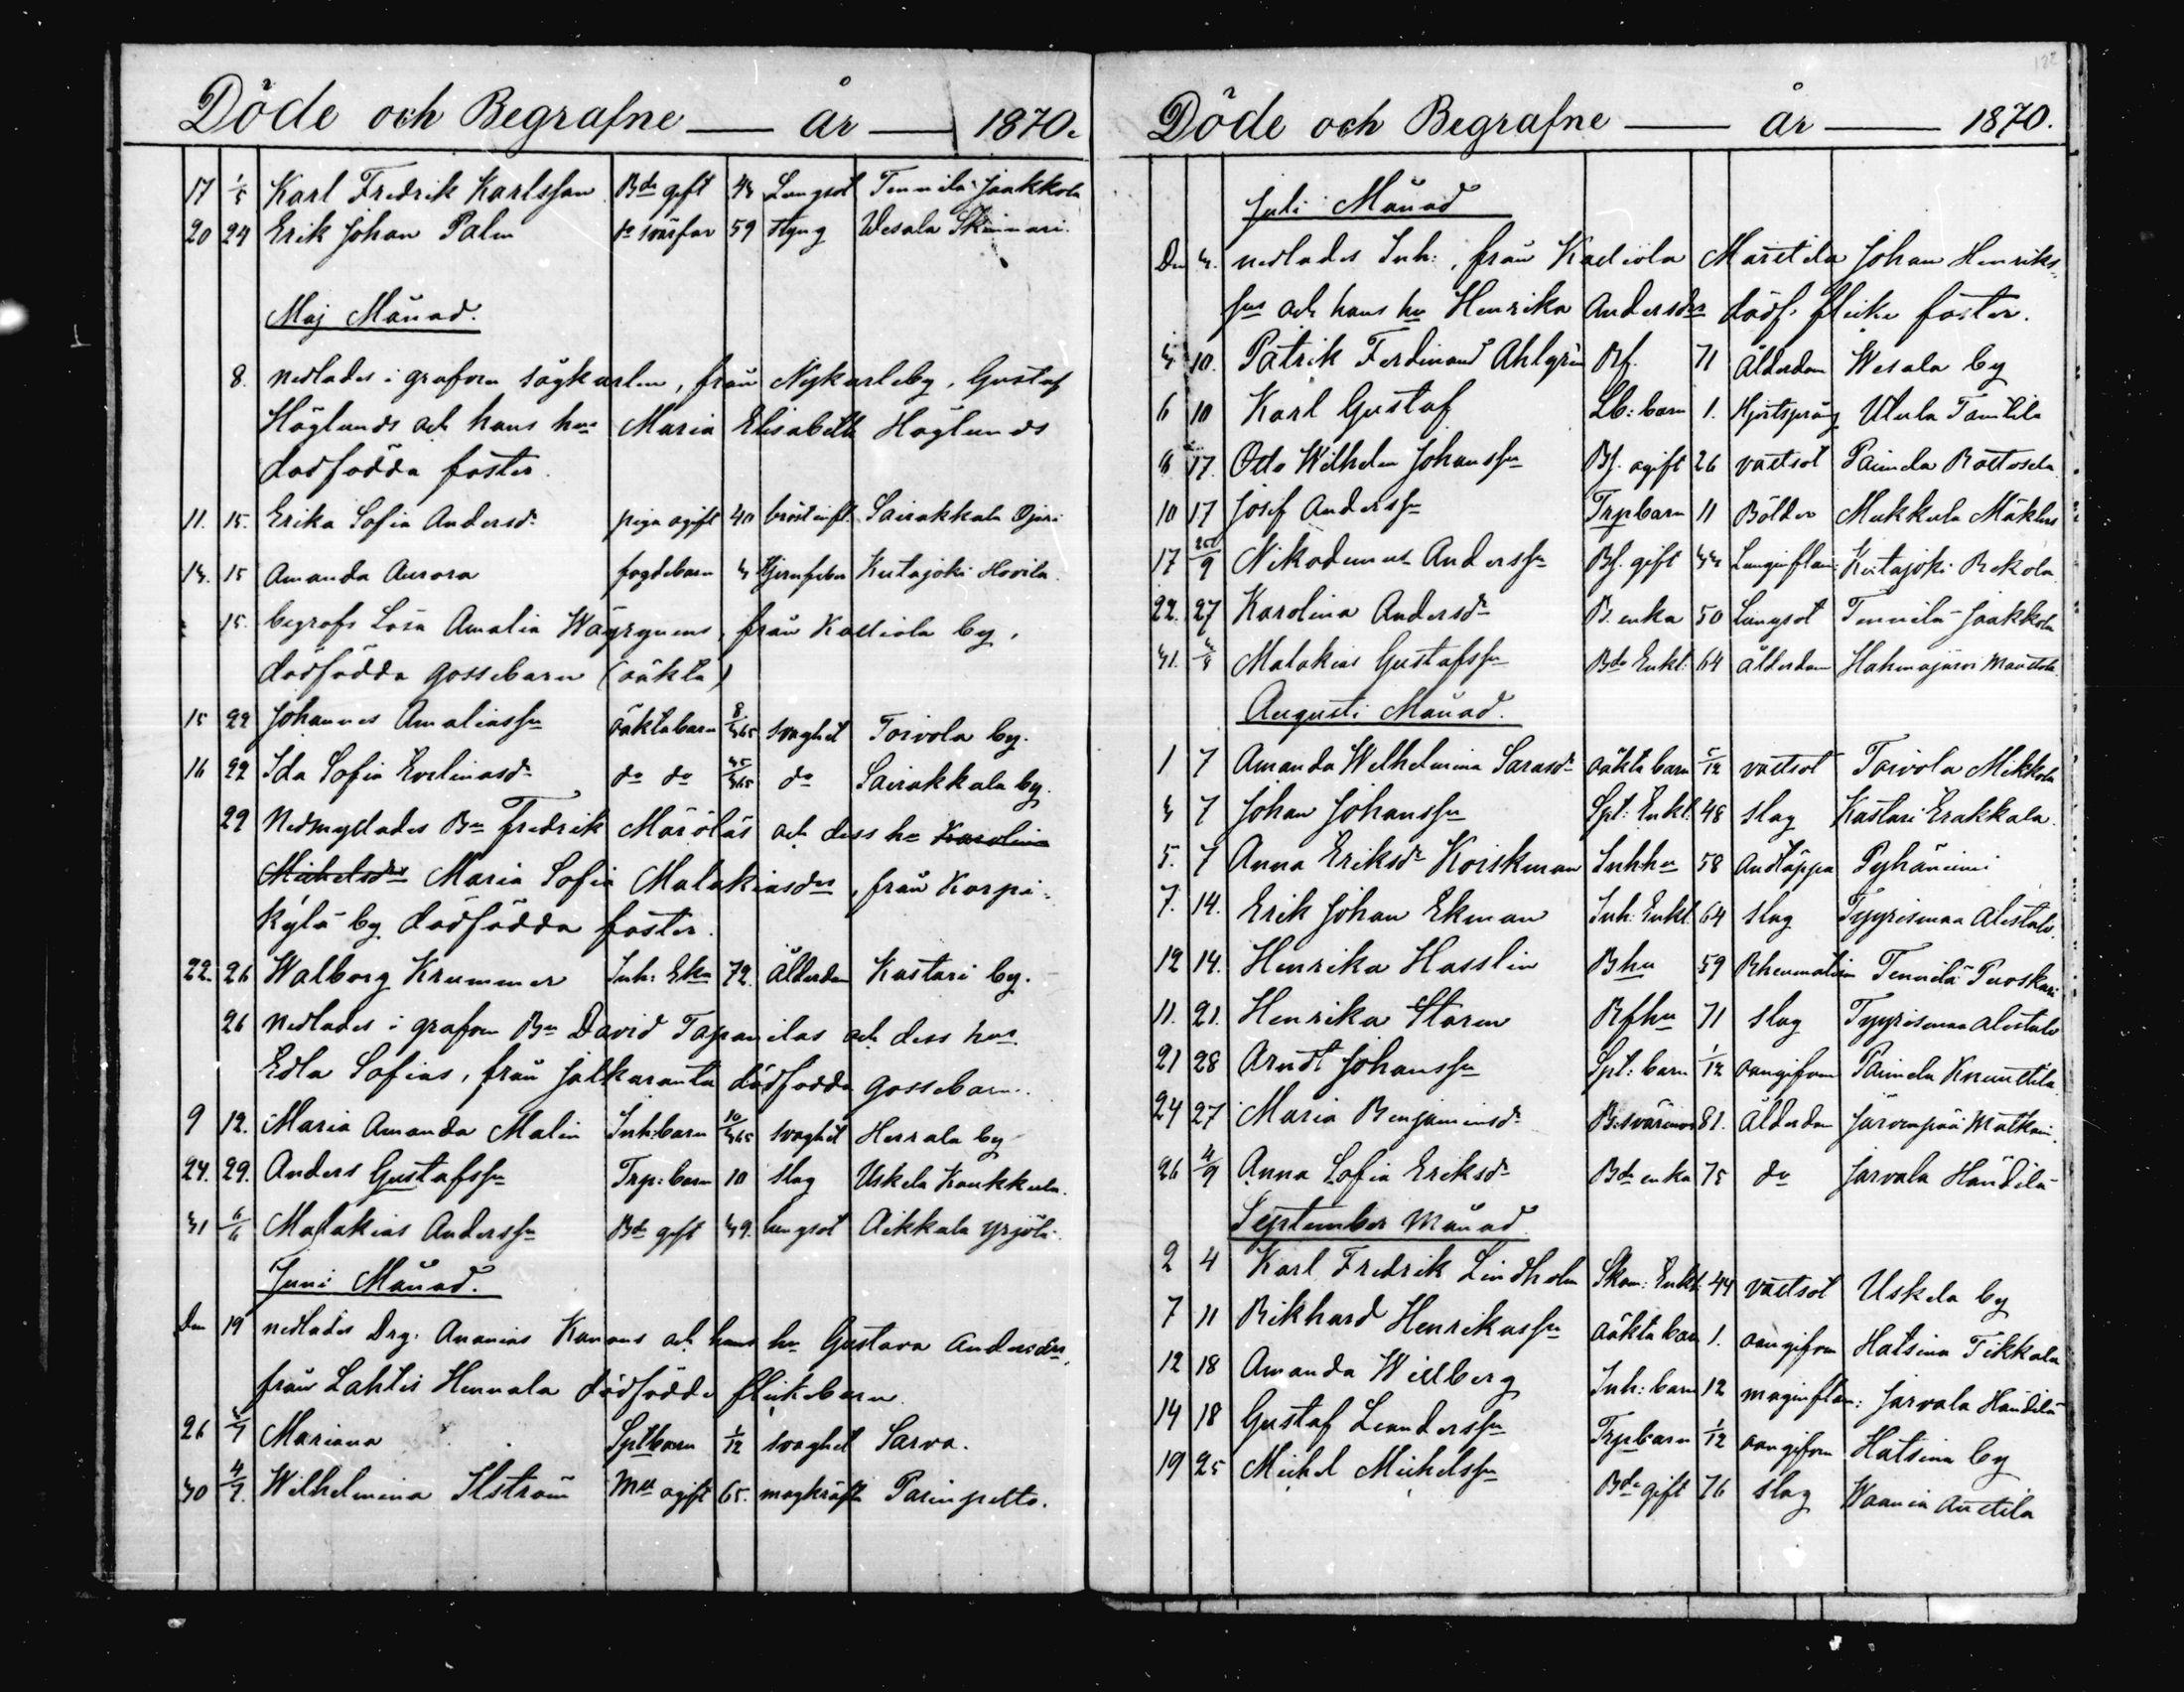 Döde och Begrafne — år — 1870.
17 1/5 Karl Fredrik Karlsson Bde gift 43 Lungsot Tennilä Jaakkola
20 24 Erik Johan Palm svärfar 59 Styng Wesala Skinnari.
Maj Månad.
8. nedlades i grafven sågkarlen, från Nykarleby, Gustaf
Höglunds och hans hus Maria Elisabeth Höglunds
dödfödda foster.
11. 15. Erika Sofia Andersdr piga ogift 40 bröstinfl. Sairakkala Ojari
13. 15 Amanda Aurora fogdebarn 3 Hjernfeber Kutajoki Hovila
15. begrofs Lösa Amalia Wäyrynens, från Kalliola by,
dödfödda gossebarn (oäkta)
15 22 Johannes Amaliasson oäktabarn 8/365 svaghet Toivola by.
16 22 Ida Sofia Evelinasdr do do 35/365 do Sairakkala by.
29 Nedmyllades Bn Fredrik Märöläs och dess hu Karolina
Michelsdr Maria Sofia Malakiasdrs, från Korpi-
kylä by dödfödda foster.
22. 26 Walborg Krummer Inh: Eka 72. Ålderdom Kastari by.
26 nedlades i grafven Bn David Tapanilas och dess hus
Edla Sofias, från Jalkaranta dödfödda gossebarn.
9 12. Maria Amanda Malin Inh: barn 10/365 svaghet Herrala by
24. 29. Anders Gustafsson Trp: barn 10 slag Uskela Kaukkala.
31 6/6 Malakias Andersson Bde gift 39. lungsot Aikkala Yrjölä.
Juni Månad.
Den 19 nedlades Drg. Ananias Kanons och hans hu Gustava Andersdrs,
från Lahtis Hennala dödfödda flickebarn.
26 3/7 Mariana Sptbarn 1/12 svaghet Sarva.
30 4/7. Wilhelmina Ilström Mll ogift 65. magkräfta Parinpelto.
Döde och Begrafne — år — 1870.
Juli Månad
Den 3. nedlades Inh:, från Kalliola Marttila Johan Henriks-
sons och hans hu Henrika Andersdrs dödf. flicke foster.
3 10. Patrik Ferdinand Ahlgrén Rf. 71 Ålderdom Wesala by
6 10 Karl Gustaf Lb: barn 1. Hjertsprång Utula Tanttila
8 17. Otto Wilhelm Johansson Bf. ogift 26 vattsot Paimela Rottosela
10 17 Josef Andersson Trpbarn 11 Bölder Mukkula Mäkelä
17 9 Nikodemus Andersson Bf. gift 33 Lunginflam: Kutajoki Rekola
22. 27 Karolina Andersdr B. enka 50 Lungsot Tennilä Jaakkola
31. Malakias Gustafsson Bde Enkl: 64 ålderdom Hahmajärvi Mauttola
Augusti Månad.
1 7 Amanda Wilhelmina Sarasdr oäkta barn 5/12 vattsot Toivola Mikkola
3 7 Johan Johansson Spt: Enkl. 48 slag Kastari Erakkala
5. 7 Anna Eriksdr Koiskman Inhhu 58 Andtäppa Pyhäniemi
7. 14. Erik Johan Ekman Inh: Enkl. 64 slag Tyyrismaa Alestalo.
12 14. Henrika Hasslin Bhu 59 Rheumatism Tennilä Puoskari
11. 21. Henrika Staren Rfhu 71 slag Tyyrismaa Alestalo
21 28 Arndt Johansson Spt: barn 1/12 oangifven Paimela Knuuttila
24 27 Maria Benjaminsdr B. svärmor 81. Ålderdom Järvenpää Matkam.
26 4/9 Anna Sofia Eriksdr Bde enka 75 do Jarvala Händilä
September månad.
2 4 Karl Fredrik Lindholm Skom: Enkl. 44 vattsot Uskela by
7 11 Rikhard Henrikasson oäkta barn 1. oangifven Hatsina Tikkala
12 18 Amanda Willberg Inh: barn 12 maginflam: Jarvala Händilä
14 18 Gustaf Leandersson Trpbarn 1/12 oangifven Hatsina by
19 25 Michel Michelsson Bde gift 76 slag Waania Anttila